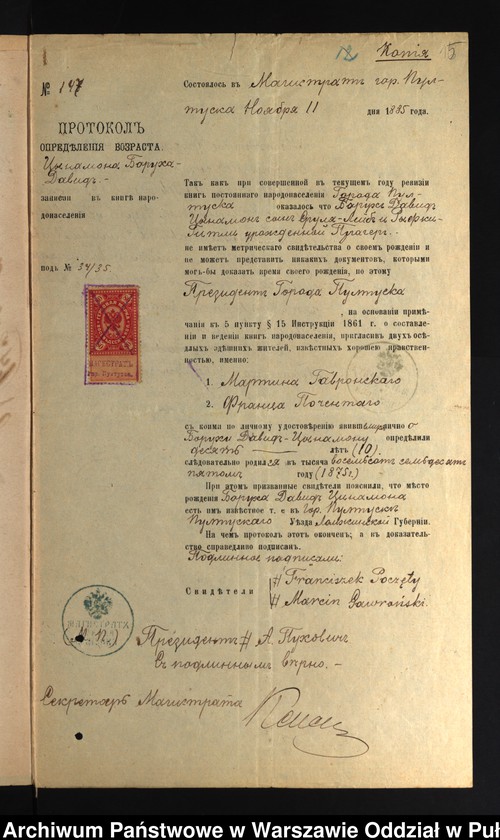 Копія
№ 147
Состоялось въ Магистратѣ гор. Пул-
туска Ноября 11 дня 1885 года.
ПРОТОКОЛЪ
ОПРЕДѢЛЕНІЯ ВОЗРАСТА
Цынамона Боруха-
Давидъ
записан въ книгѣ наро-
донаселенія
подъ № 34/35.
Такъ какъ при совершенной въ текущемъ году ревизіи
книгъ постояннаго народонаселенія Города Пул-
туска оказалось что Борухъ Давидъ
Цынамонъ сынъ и
урожденной
не имѣетъ метрическаго свидѣтельства о своемъ рожденіи и
не можетъ представить никакихъ документовъ, которыми
могъ-бы доказать время своего рожденія, по этому
Президентъ Города Пултуска
, на основаніи примѣ-
чанія къ 5 пункту § 15 Инструкціи 1861 г. о составле-
ніи и веденіи книгъ народонаселенія, пригласивъ двухъ осѣд-
лыхъ здѣшнихъ жителей, извѣстныхъ хорошею нравствен-
ностью, именно:
1. Мартина Гавронскаго
2. Франца Почентаго
съ коими по личному удостовѣренію
Боруху Давидъ-Цынамону опредѣлили
десять лѣтъ (10)
слѣдовательно родился въ тысяча восемьсотъ семьдесятъ
пятомъ году (1875 г.)
При этомъ призванные свидѣтели пояснили, что мѣсто
рожденія Боруха Давидъ Цинамона
есть имъ извѣстное т. е въ Гор. Пултускѣ
Пултускаго Уѣзда Ломжинской Губерніи.
На чемъ протоколъ этотъ оконченъ; а въ доказатель-
ство справедливо подписанъ.
Подлинное подписали:
Свидѣтели
Franciszek Poczęty
Marcin Gawroński.
МАГИСТРАТЪ
Президентъ А. Пуховичъ
Съ подлиннымъ вѣрно. -
Секретарь Магистрата
Archiwum Państwowe w Warszawie Oddział w Puł